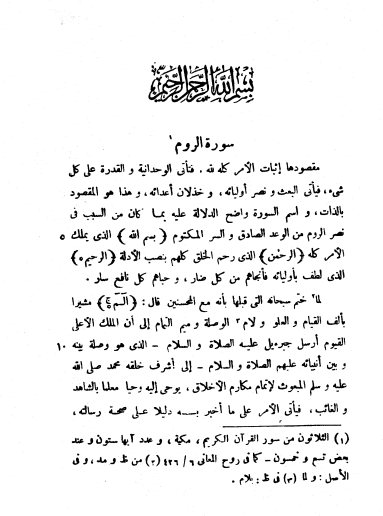 بسم الله الرحمن الرحيم
سورة الروم ١
مقصودها إثبات الأمر كله لله . فتأتى الوحدانية و القدرة على كل
شىء، فيأتى البعث و نصر أوليائه ، و خذلان أعدائه ، و هذا هو المقصود
بالذات ، و اسم السورة واضح الدلالة عليه بما كان من السبب فى
نصر الروم من الوعد الصادق و السر المكتوم ﴿ بسم الله ﴾ الذى يملك ٥
الأمر كله ﴿ الرحمٰن ﴾ الذى رحم الخلق كلهم بنصب الأدلة ﴿ الرحيم ه ﴾
الذى لطف بأوليائه فأنجاهم من كل ضار ، و حباهم كل نافع سار .
لما ٢ ختم سبحانه التى قبلها بأنه مع المحسنين قال : ﴿ الٓمّٓ ج ﴾ مشيرا
بألف القيام و العلو و لام ٣ الوصلة و ميم التمام إلى أن الملك الأعلى
القيوم أرسل جبريل عليه الصلاة و السلام - الذى هو وصلة بينه ١٠
و بين أنبيائه عليهم الصلاة و السلام - إلى أشرف خلقه محمد صلى الله
عليه و سلم المبعوث لإتمام مكارم الأخلاق ، يوحى إليه وحيا معلما بالشاهد
و الغائب ، فيأتى الأمر على ما أخبر به دليلا على صحة رسالته ،
(١) الثلاثون من سور القرآن الكريم ، مكية ، و عدد آيها ستون و عند
بعض تسع و خمسون - كما فى روح المعانى ٦ / ٤٢٦ (٢) من ظ و مد ، و فى
الأصل : و لما (٣) فى ظ : بلام .